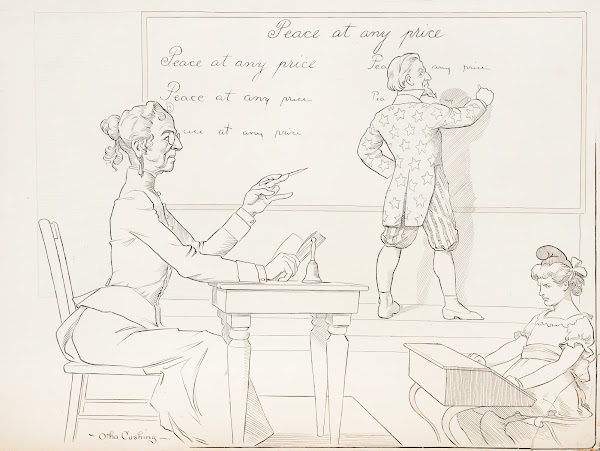 Peace at any price
Peace at any price
Peace at any price
at any price
Pea any price
Pea
~ Otho Cushing ~